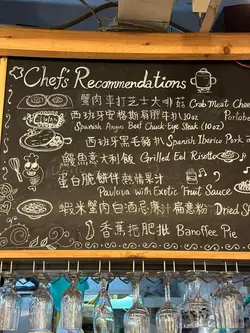 Chef's Recommendations
蟹肉車打芝士大啡菇 Crab Meat Chee
Portobe
西班牙安格斯肩胛牛扒10oz
Spanish Angus Beef Chuck Eye Steak (10oz)
西班牙黑毛豬扒 Spanish Iberico Pork
鰻魚意大利飯 Grilled Eel Risotto
蛋白脆餅伴熱情果汁
Pavlova with Exotic Fruit Sauce
蝦米蟹肉白酒忌廉汁扁意粉 Dried S
香蕉拖肥批 Banoffee Pie